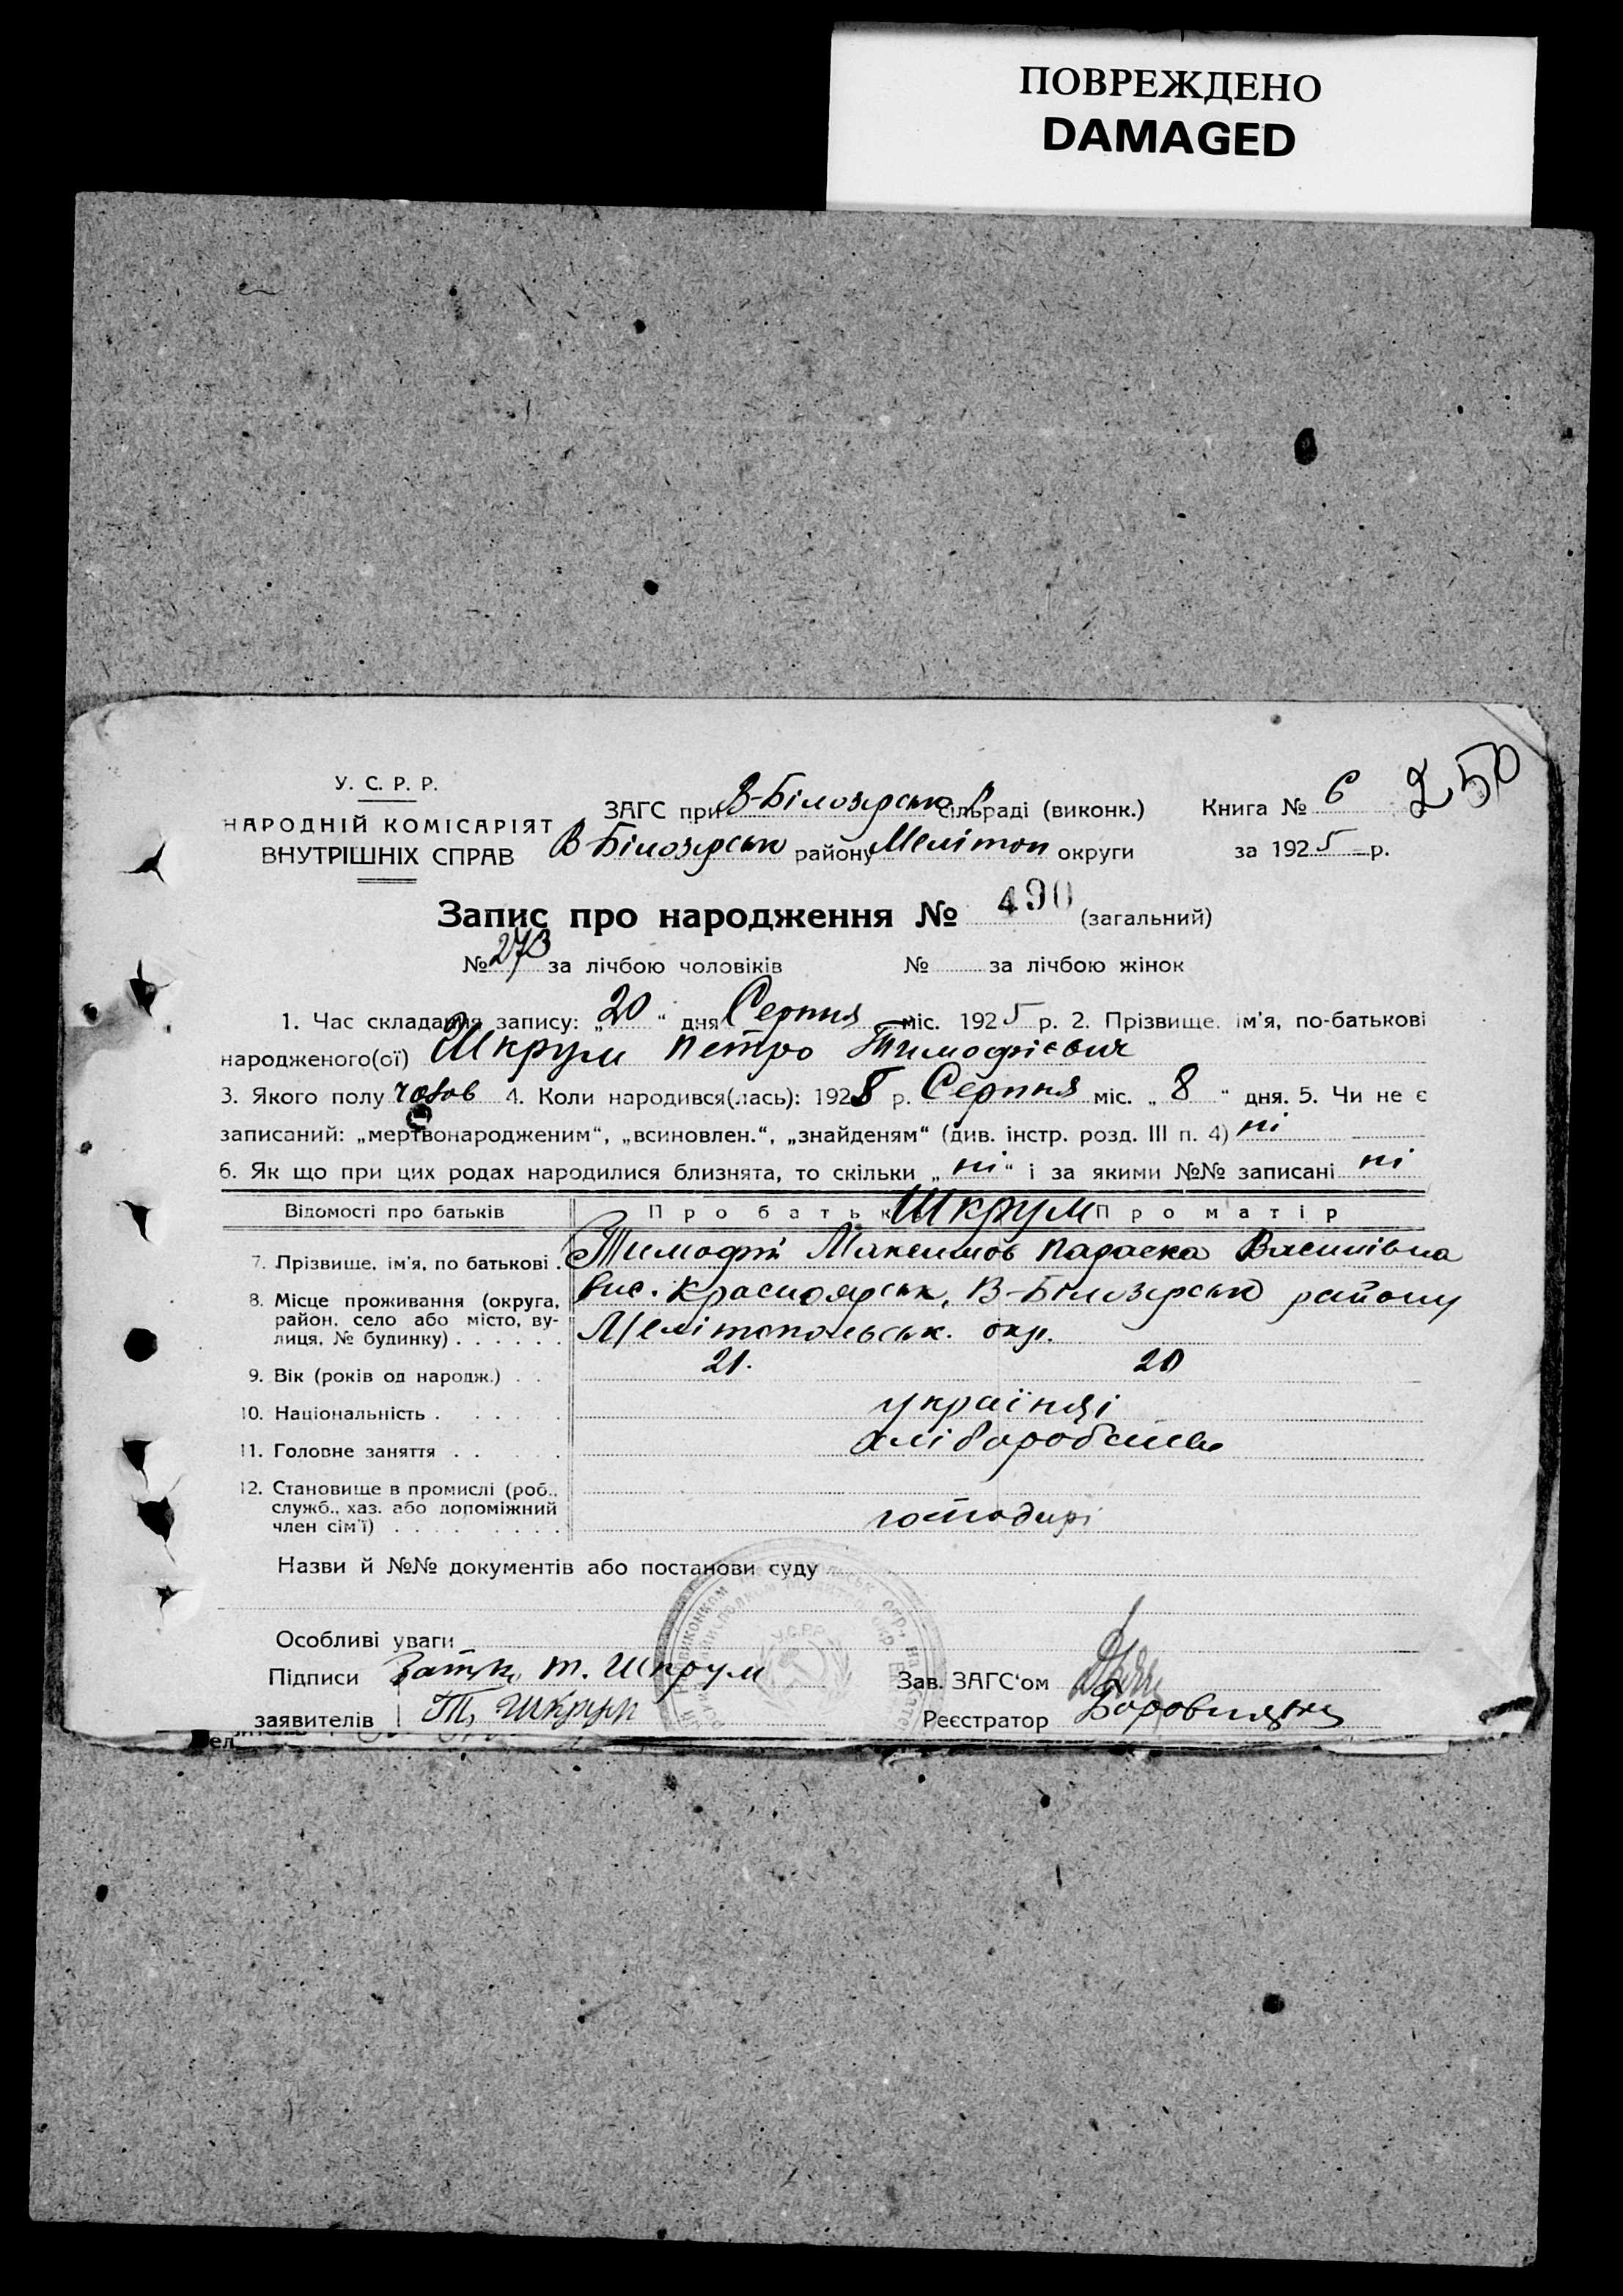 ПОВРЕЖДЕНО
DAMAGED
У. С. Р. Р.
НАРОДНІЙ КОМІСАРІЯТ
ВНУТРІШНІХ СПРАВ
ЗАГС при В-Білозерській сільраді (виконк.)
В-Білозерськ району Мелітоп округи
Книга № 6 250
за 1925 р.
Запис про народження № 490 (загальний)
№ 273 за лічбою чоловіків № за лічбою жінок
1. Час складання запису: „20“ дня Серпня міс. 1925 р. 2. Прізвище, ім'я, по-батькові
народженого(ої) Шкрум Петро Тимофієвич
3. Якого полу чолов 4. Коли народився(лась): 1925 р. Серпня міс. „8“ дня. 5. Чи не є
записаний: „мертвонародженим“, „всиновлен.“, „знайденям“ (див. інстр. розд. III п. 4) ні
6. Як що при цих родах народилися близнята, то скільки „ні“ і за якими №№ записані ні
Відомості про батьків Про батька Шкрум Про матір
7. Прізвище, ім'я, по батькові . Тимофій Максимов Параска Василівна
8. Місце проживання (округа, район, село або місто, вулиця, № будинку) . . . . . .
вис. Красноярськ, В-Білозерсько району
Мелітопольськ. окр.
9. Вік (років од народж.) . . 21. 20
10. Національність . . . . . українці
11. Головне заняття . . . хлібороб
12. Становище в промислі (роб., служб., хаз. або допоміжний член сім'ї) . . . . . . . .
господарі
Назви й №№ документів або постанови суду
Особливі уваги
Підписи Т. Шкрум
заявителів Т. Шкрум
Зав. ЗАГС'ом
Реєстратор
У.С.Р.Р.